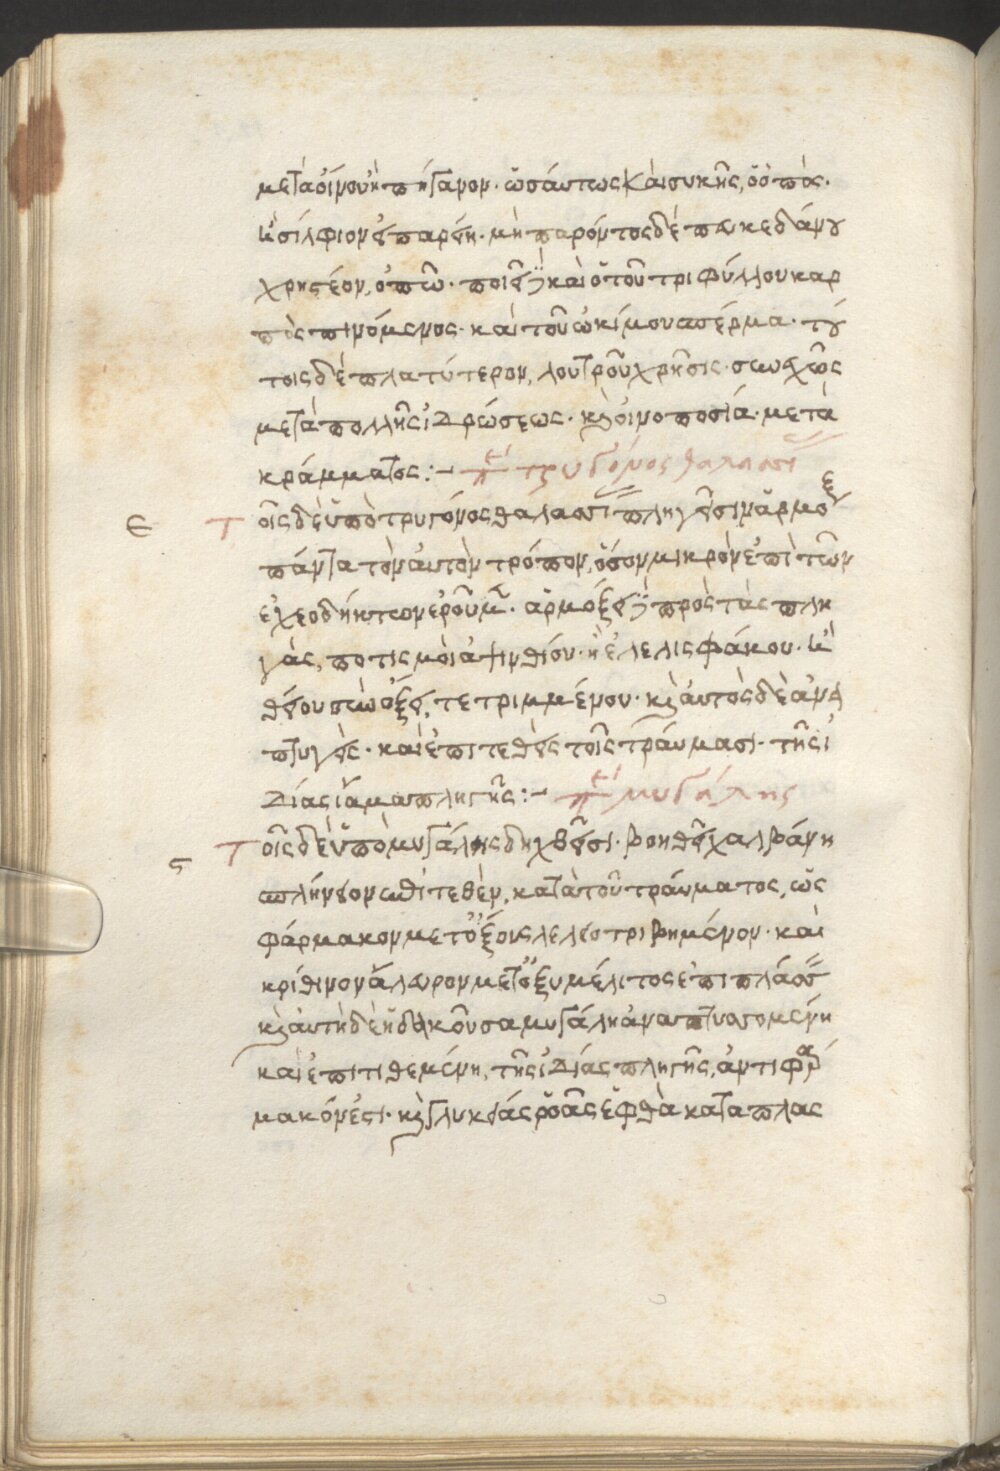 μετὰ οἴνου ἢ πήγανον· ὡσαύτως καὶ συκῆς, ὁ ὀπὸς·
ἢ σίλφιον εἰ παρείη· μὴ παρόντος δὲ πευκεδάνου
χρηστέον, ὀπῶ· ποιεῖ δὲ καὶ ὁ τοῦ τριφύλλου καρ
πὸς πινόμενος· καὶ τοῦ ὠκίμου σπέρμα· τού
τοις δὲ πλατύτερον, λουτροῦ χρῆσις· συνεχῶς
μετὰ πολλῆς ἱδρώσεως· καὶ οἰνοποσία· μετὰ
κράμματος:– περὶ τρυγόνος θαλασσί
ε Τοῖς δὲ ὑπὸ τρυγόνος θαλασσί πληγεῖσιν ἁρμόσει
πάντα τὸν αὐτὸν τρόπον, ὅσον μικρὸν ἐπὶ τῶν
ἐχεοδήκτων ἐροῦμεν· ἁρμόξει δὲ πρὸς τὰς πλη
γὰς, ποτισμὸς ἀψινθίου· ἢ ἐλελισφάκου· ἢ
θείου σὺν ὄξει, τετριμμένου· καὶ αὐτὸς δὲ ἀνα
πτυγεὶς· καὶ ἐπιτεθεὶς τοῖς τραύμασι· τῆς ἰ
δίας ἴαμα πληγῆς:– περὶ μυγάλης
ς Τοῖς δὲ ὑπὸ μυγάλης δηχθεῖσι· βοηθεῖ χαλβάνη
σπλήνιον ἐπιτεθὲν, κατὰ τοῦ τραύματος, ὡς
φάρμακον μετ' ὄξους λελειοτριβημένον· καὶ
κρίθινον ἄλευρον μετ' ὀξυμέλιτος ἐπιπλάσσ
καὶ αὐτὴ δὲ ἡ δακοῦσα μυγάλη ἀναπτυσσομένη
καὶ ἐπιτιθεμένη, τῆς ἰδίας πληγῆς, ἀντιφάρ
μακόν ἐστι· καὶ γλυκείας ῥοᾶς ἑφθὰ καταπλας